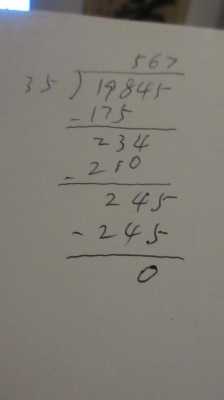 567
35 ) 19845
- 175
234
- 210
245
- 245
0